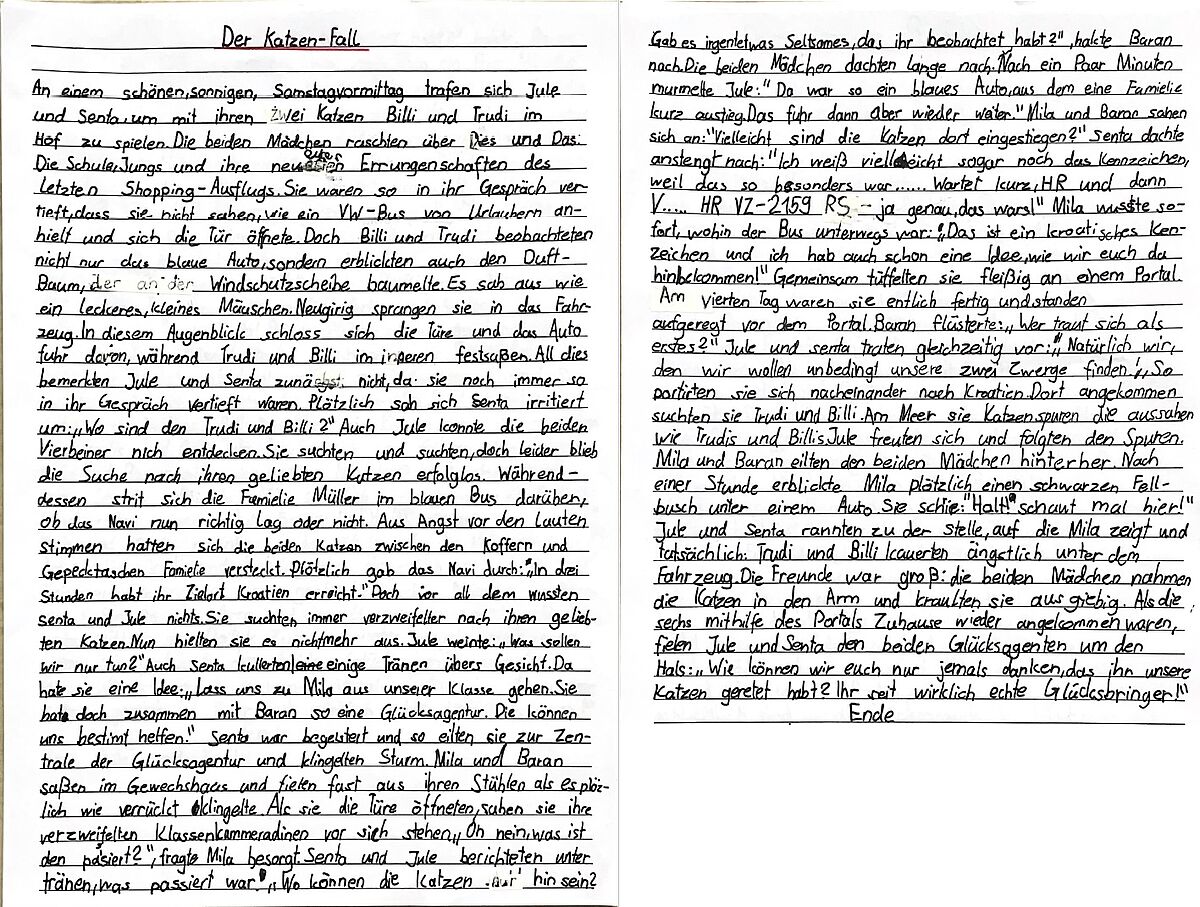 Der Katzen-Fall
An einem schönen, sonnigen, Samstagvormittag trafen sich Jule
und Senta, um mit ihren zwei Katzen Billi und Trudi im
Hof zu spielen. Die beiden Mädchen raschten über Dies und Das.
Die Schule, Jungs und ihre Errungenschaften des
letzten Shopping-Ausflugs. Sie waren so in ihr Gespräch ver-
tieft, dass sie nicht sahen, wie ein VW-Bus von Urlaubern an-
hielt und sich die Tür öffnete. Doch Billi und Trudi beobachteten
nicht nur das blaue Auto, sondern erblickten auch den Duft-
Baum, der an der Windschutzscheibe baumelte. Es sah aus wie
ein leckeres, kleines Mäuschen. Neugirig sprangen sie in das Fahr-
zeug. In diesem Augenblick schloss sich die Türe und das Auto
fuhr davon, während Trudi und Billi im inneren festsaßen. All dies
bemerkten Jule und Senta zunächst nicht, da sie noch immer so
in ihr Gespräch vertieft waren. Plötzlich sah sich Senta irritiert
um: „Wo sind den Trudi und Billi?" Auch Jule konnte die beiden
Vierbeiner nich entdecken. Sie suchten und suchten, doch leider blieb
die Suche nach ihren geliebten Katzen erfolglos. Während-
dessen strit sich die Famielie Müller im blauen Bus darüber,
ob das Navi nun richtig lag oder nicht. Aus Angst vor den Lauten
stimmen hatten sich die beiden Katzen zwischen den Koffern und
Gepecktaschen Famielie versteckt. Plötzlich gab das Navi durch: „In drei
Stunden habt ihr Zielort Kroatien erreicht." Doch vor all dem wussten
senta und Jule nichts. Sie suchten immer verzweifelter nach ihren gelieb-
ten Katzen. Nun hielten sie es nichtmehr aus. Jule weinte: „Was sollen
wir nur tun?" Auch Senta kullerten eine einige Tränen übers Gesicht. Da
hate sie eine Idee: „Lass uns zu Mila aus unserer Klasse gehen. Sie
hate doch zusammen mit Baran so eine Glücksagentur. Die können
uns bestimt helfen!" Senta war begeistert und so eilten sie zur Zen-
trale der Glücksagentur und klingelten Sturm. Mila und Baran
saßen im Gewechshaus und fielen fast aus ihren Stühlen als es plöz-
lich wie verrückt klingelte. Als sie die Türe öffneten, sahen sie ihre
verzweifelten Klassenkammeradinen vor sich stehen „Oh nein, was ist
den pasiert?", fragte Mila besorgt. Senta und Jule berichteten unter
tränen, was passiert war. „Wo können die Katzen nur hin sein?
Gab es irgentetwas Seltsames, das ihr beobachtet habt?", hakte Baran
nach. Die beiden Mädchen dachten lange nach. Nach ein Paar Minuten
murmelte Jule: "Da war so ein blaues Auto, aus dem eine Famielie
kurz austieg. Das fuhr dann aber wieder weiter." Mila und Baran sahen
sich an: "Vielleicht sind die Katzen dort eingestiegen?" Senta dachte
anstengt nach: "Ich weiß vielleicht sogar noch das Kennzeichen,
weil das so besonders war...... Wartet kurz, HR und dann
V..... HR VZ-2159 RS - ja genau, das wars!" Mila wusste so-
fort, wohin der Bus unterwegs war: „Das ist ein kroatisches Ken-
zeichen und ich hab auch schon eine Idee, wie wir euch da
hinbekommen!" Gemeinsam tüffelten sie fleißig an einem Portal.
Am vierten Tag waren sie entlich fertig und standen
aufgeregt vor dem Portal. Baran flüsterte: „Wer traut sich als
erstes?" Jule und senta traten gleichzeitig vor: „Natürlich wir,
den wir wollen unbedingt unsere zwei Zwerge finden!" So
portirten sie sich nacheinander nach Kroatien. Dort angekommen
suchten sie Trudi und Billi. Am Meer sie Katzenspuren die aussahen
wie Trudis und Billis. Jule freuten sich und folgten den Spuren.
Mila und Baran eilten den beiden Mädchen hinterher. Nach
einer Stunde erblickte Mila plötzlich einen schwarzen Fell-
busch unter einem Auto. Sie schie: "Halt! schaut mal hier!"
Jule und Senta rannten zu der Stelle, auf die Mila zeigt und
tatsächlich: Trudi und Billi kauerten ängstlich unter dem
Fahrzeug. Die Freunde war groß: die beiden Mädchen nahmen
die Katzen in den Arm und kraulten sie ausgiebig. Als die
sechs mithilfe des Portals Zuhause wieder angekommen waren,
fielen Jule und Senta den beiden Glücksagenten um den
Hals: „Wie können wir euch nur jemals danken, das ihr unsere
Katzen geretet habt? Ihr seit wirklich echte Glücksbringer!"
Ende